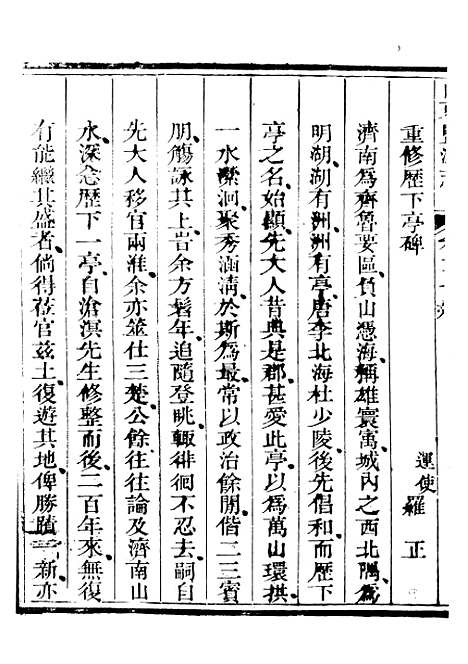 重修歷下亭碑
運使羅正
濟南為齊魯要區負山憑海稱雄寰寓城內之西北隅為
明湖湖有洲洲有亭唐李北海杜少陵後先倡和而歷下
亭之名始顯先大人昔典是郡甚愛此亭以為萬山環拱
一水縈洄聚秀涵淸於斯為最常以政治餘閒偕二三賓
朋觴詠其上旹余方髫年追隨登眺輙徘徊不忍去嗣自
先大人移官兩淮余亦筮仕三楚公餘往往論及濟南山
水深念歷下一亭自滄溟先生修整而後二百年來無復
有能繼其盛者倘得莅官茲土復遊其地俾勝蹟一新亦